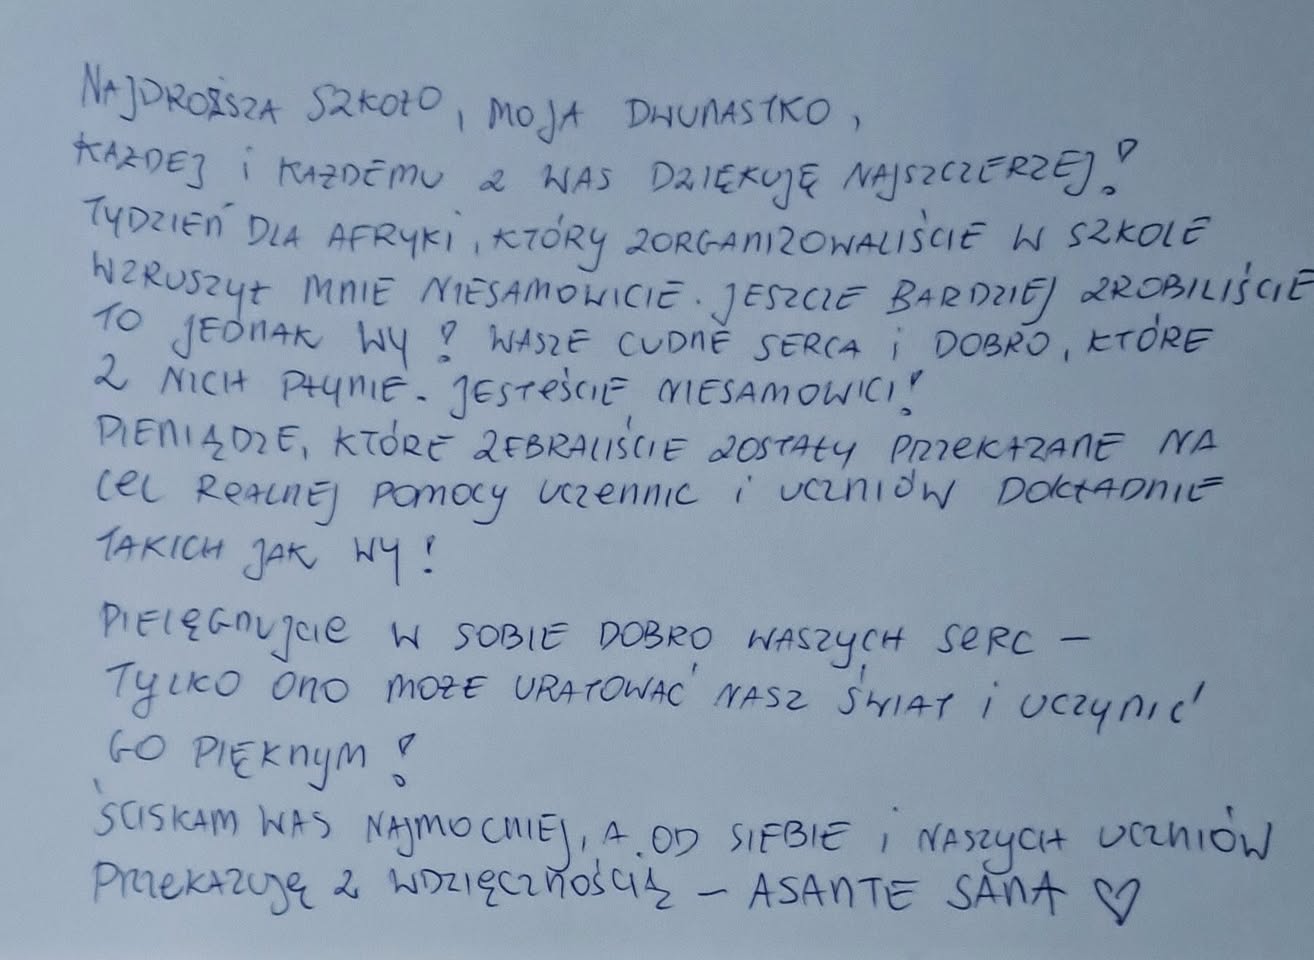 NAJDROŻSZA SZKOŁO, MOJA DWUNASTKO,
KAŻDEJ i KAŻDEMU Z WAS DZIĘKUJĘ NAJSZCZERZEJ!
TYDZIEŃ DLA AFRYKI, KTÓRY ZORGANIZOWALIŚCIE W SZKOLE
WZRUSZYŁ MNIE NIESAMOWICIE. JESZCZE BARDZIEJ ZROBILIŚCIE
TO JEDNAK WY! WASZE CUDNE SERCA i DOBRO, KTÓRE
Z NICH PŁYNIE. JESTEŚCIE NIESAMOWICI!
PIENIĄDZE, KTÓRE ZEBRALIŚCIE ZOSTAŁY PRZEKAZANE NA
CEL REALNEJ POMOCY UCZENNIC i UCZNIÓW DOKŁADNIE
TAKICH JAK WY!
PIELĘGNUJCIE W SOBIE DOBRO WASZYCH SERC –
TYLKO ONO MOŻE URATOWAĆ NASZ ŚWIAT i UCZYNIĆ
GO PIĘKNYM!
ŚCISKAM WAS NAJMOCNIEJ, A OD SIEBIE i NASZYCH UCZNIÓW
PRZEKAZUJĘ Z WDZIĘCZNOŚCIĄ – ASANTE SANA ♡